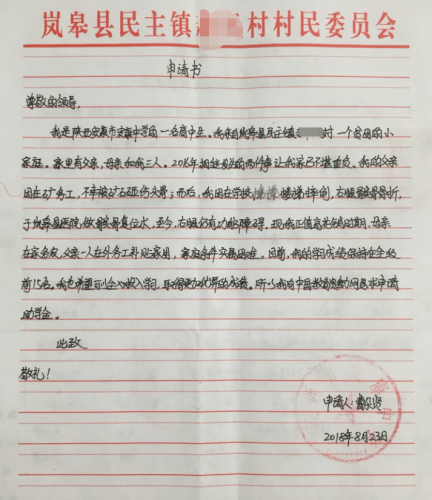 岚皋县民主镇 村村民委员会
申请书
尊敬的领导:
我是陕西安康市 中学的一名高中生。我来自岚皋县民主镇 村一个贫困的小
家庭。家里有父亲,母亲和我三人。2018年相继发生的两件事让我家已不堪重负。我的父亲
因在矿务工,不幸被矿石砸伤 ;而后,我因在学校 楼梯摔倒,右腿 骨折,
于 县医院做 复位术,至今,右腿仍有功能障碍。现我正值高 的时期,母亲
在家务农,父亲一人在外务工补贴家用,家庭条件实属困难。目前,我的学习成绩保持在全级
前15名。我也希望可以全心投入学习,取得更加优异的成绩。所以我向中国教育 助网恳求申请
助学金。
此致
敬礼!
申请人:
2018年8月23日